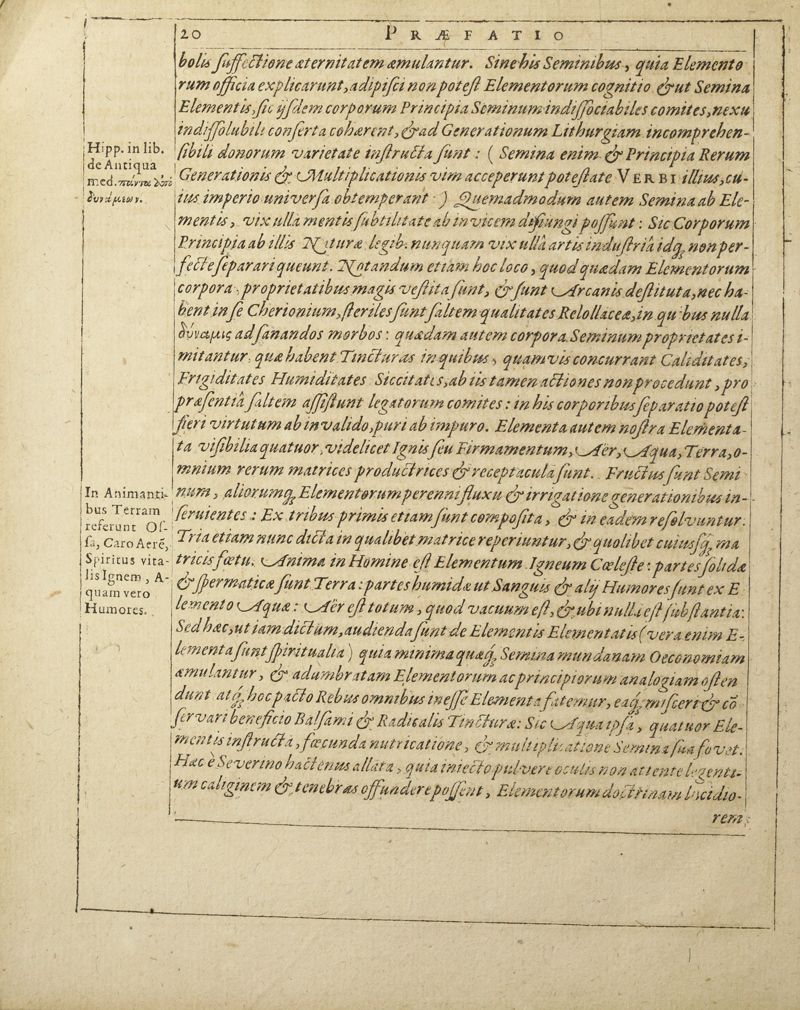 20
PRÆFATIO
bolis suffectione æternitatem æmulantur. Sine his Seminibus, quia Elemento
rum officia explicarunt, adipisci non potest Elementorum cognitio & ut Semina
Elementis, sic ijsdem corporum Principia Seminum indissociabiles comites, nexu
indissolubili conserta cohærent, & ad Generationum Lithurgiam incomprehen-
sibili donorum varietate instructa sunt: (Semina enim & Principia Rerum
Generationis & Multiplicationis vim acceperunt potestate VERBI illius, cu-
ius imperio universa obtemperant) Quemadmodum autem Semina ab Ele-
mentis, vix ulla mentis subtilitate ab invicem disiungi possunt: Sic Corporum
Principia ab illis Naturæ legib. nunquam vix ulla artis industria idq; non per-
fecte separari queunt. Notandum etiam hoc loco, quod quædam Elementorum
corpora, proprietatibus magis vestita sunt, & sunt Arcanis destituta, nec ha-
bent in se Cherionium, steriles sunt saltem qualitates Relollaceæ, in quibus nulla
δύναμις ad sanandos morbos: quædam autem corpora Seminum proprietates i-
mitantur, quæ habent Tincturas in quibus, quamvis concurrant Caliditates,
Frigiditates Humiditates Siccitates, ab iis tamen actiones non procedunt, pro
præsentia saltem assistunt legatorum comites: in his corporibus separatio potest
fieri virtutum ab invalido, puri ab impuro. Elementa autem nostra Elementa-
ta visibilia quatuor, videlicet Ignis seu Firmamentum, Aër, Aqua, Terra, o-
mnium rerum matrices productrices & receptacula sunt. Fructus sunt Semi
num, aliorumq; Elementorum perenni fluxu & irrigatione generationibus in-
servientes: Ex tribus primis etiam sunt composita, & in eadem resolvuntur.
Tria etiam nunc dicta in qualibet matrice reperiuntur, & quolibet cuiusq; ma
tricis fœtu. Anima in Homine est Elementum Igneum Cœleste: partes solidæ
& spermaticæ sunt Terra: partes humidæ ut Sanguis & alij Humores sunt ex E
lemento Aquæ: Aër est totum, quod vacuum est, & ubi nulla est substantia:
Sed hæc, ut iam dictum, audienda sunt de Elementis Elementatis (vera enim E-
lementa sunt spiritualia) quia minima quæq; Semina mundanam Oeconomiam
æmulantur, & adumbratam Elementorum ac principiorum analogiam osten
dunt atq; hoc pacto Rebus omnibus inesse Elementa fatemur, eaq; misceri & co
servari beneficio Balsami & Radicalis Tincturæ: Sic Aqua ipsa, quatuor Ele-
mentis instructa, fœcunda nutricatione, & multiplicatione Semina sua fovet.
Hæc è Severino hactenus allata, quia iniecto pulvere oculis non attente legenti-
um caliginem & tenebras offundere possent, Elementorum doctrinam lucidio-
rem
Hipp. in lib.
de Antiqua
med.
δυνάμεων.
In Animanti-
bus Terram
referunt Os-
sa, Caro Aerẽ,
Spiritus vita-
lis Ignem, A-
quam vero
Humores.